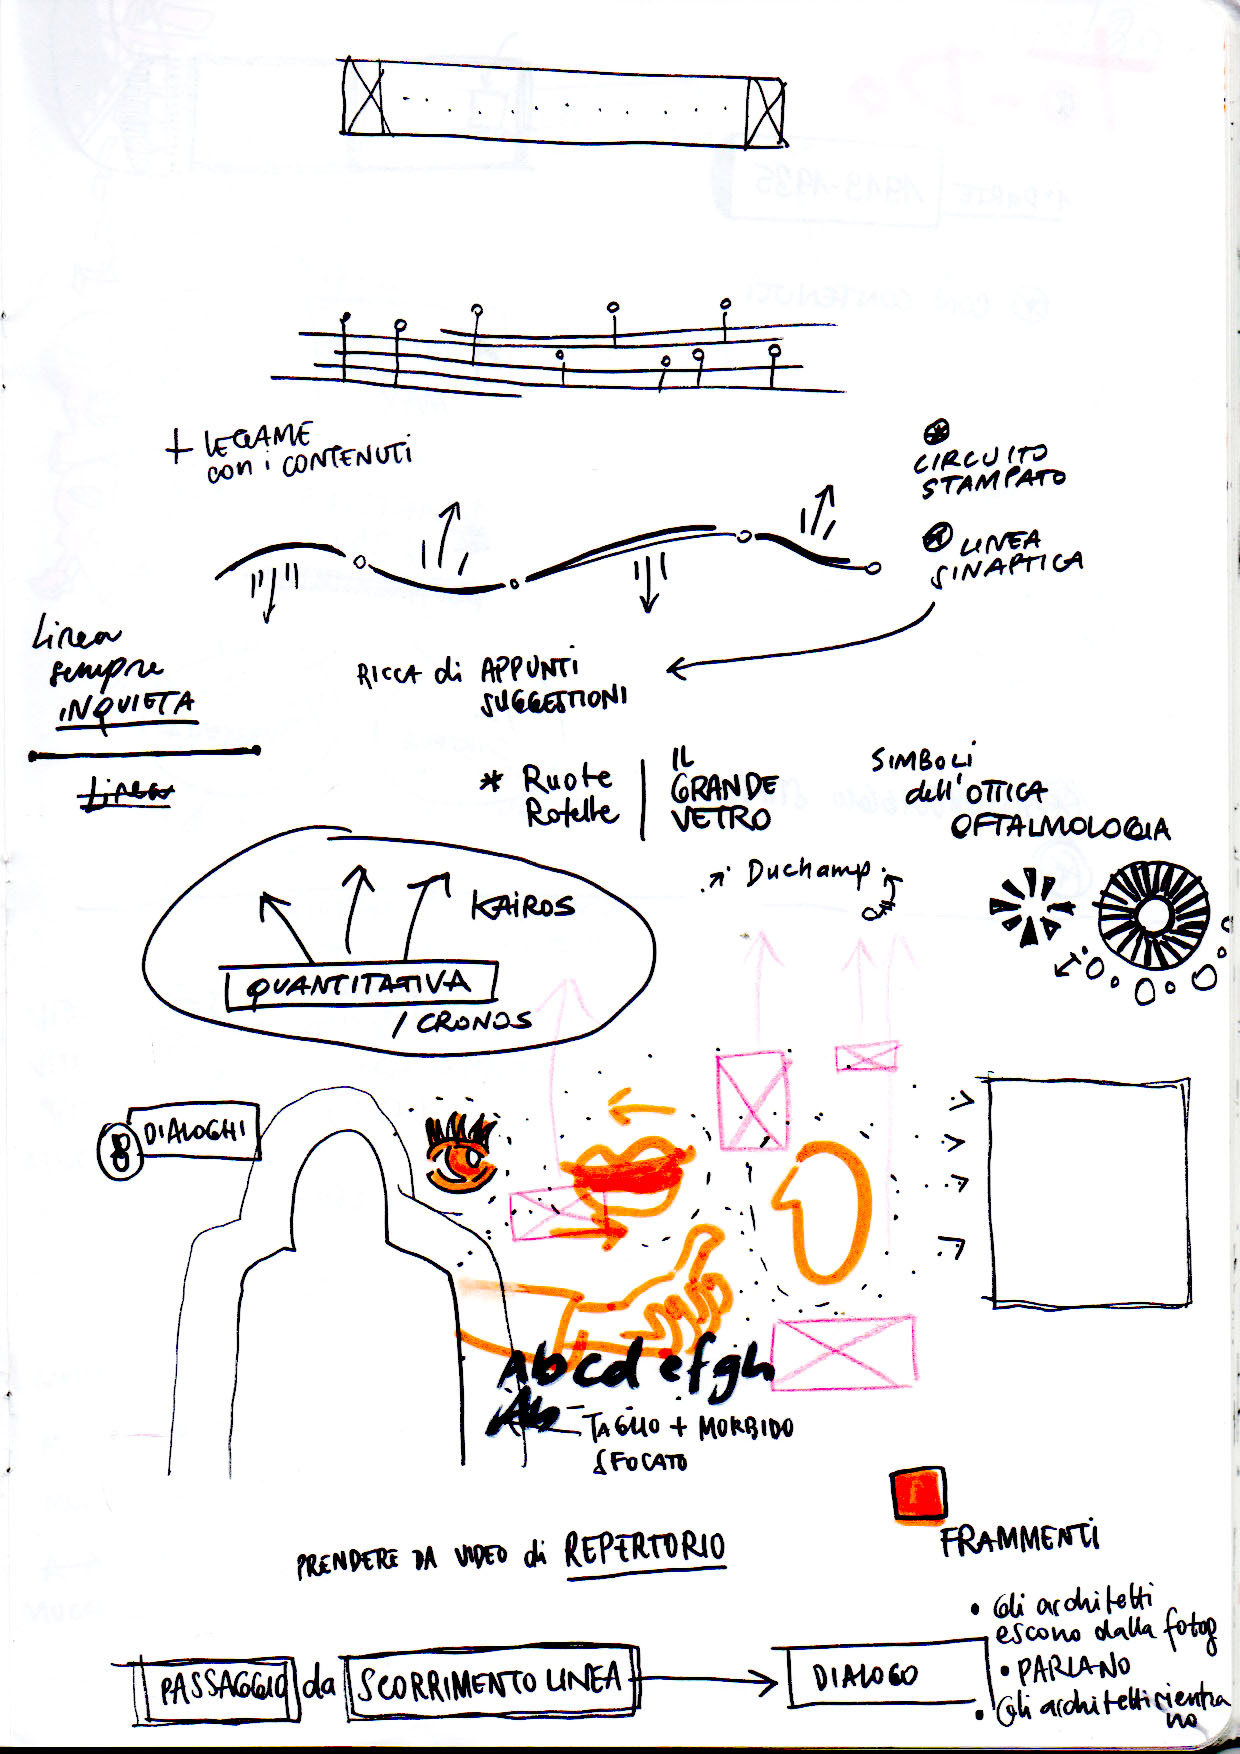 + LEGAME
con i CONTENUTI
CIRCUITO
STAMPATO
LINEA
SINAPTICA
Linea
sempre
INQUIETA
Linea
RICCA di APPUNTI
SUGGESTIONI
* Ruote
Rotelle
IL
GRANDE
VETRO
Duchamp
SIMBOLI
dell'OTTICA
OFTALMOLOGIA
KAIROS
QUANTITATIVA
/ CRONOS
8 DIALOGHI
Abcdefgh
Ab
TAGLIO + MORBIDO
SFOCATO
PRENDERE DA VIDEO di REPERTORIO
FRAMMENTI
PASSAGGIO da SCORRIMENTO LINEA
DIALOGO
• Gli architetti
escono dalla fotog
• PARLANO
• Gli architetti rientra
no